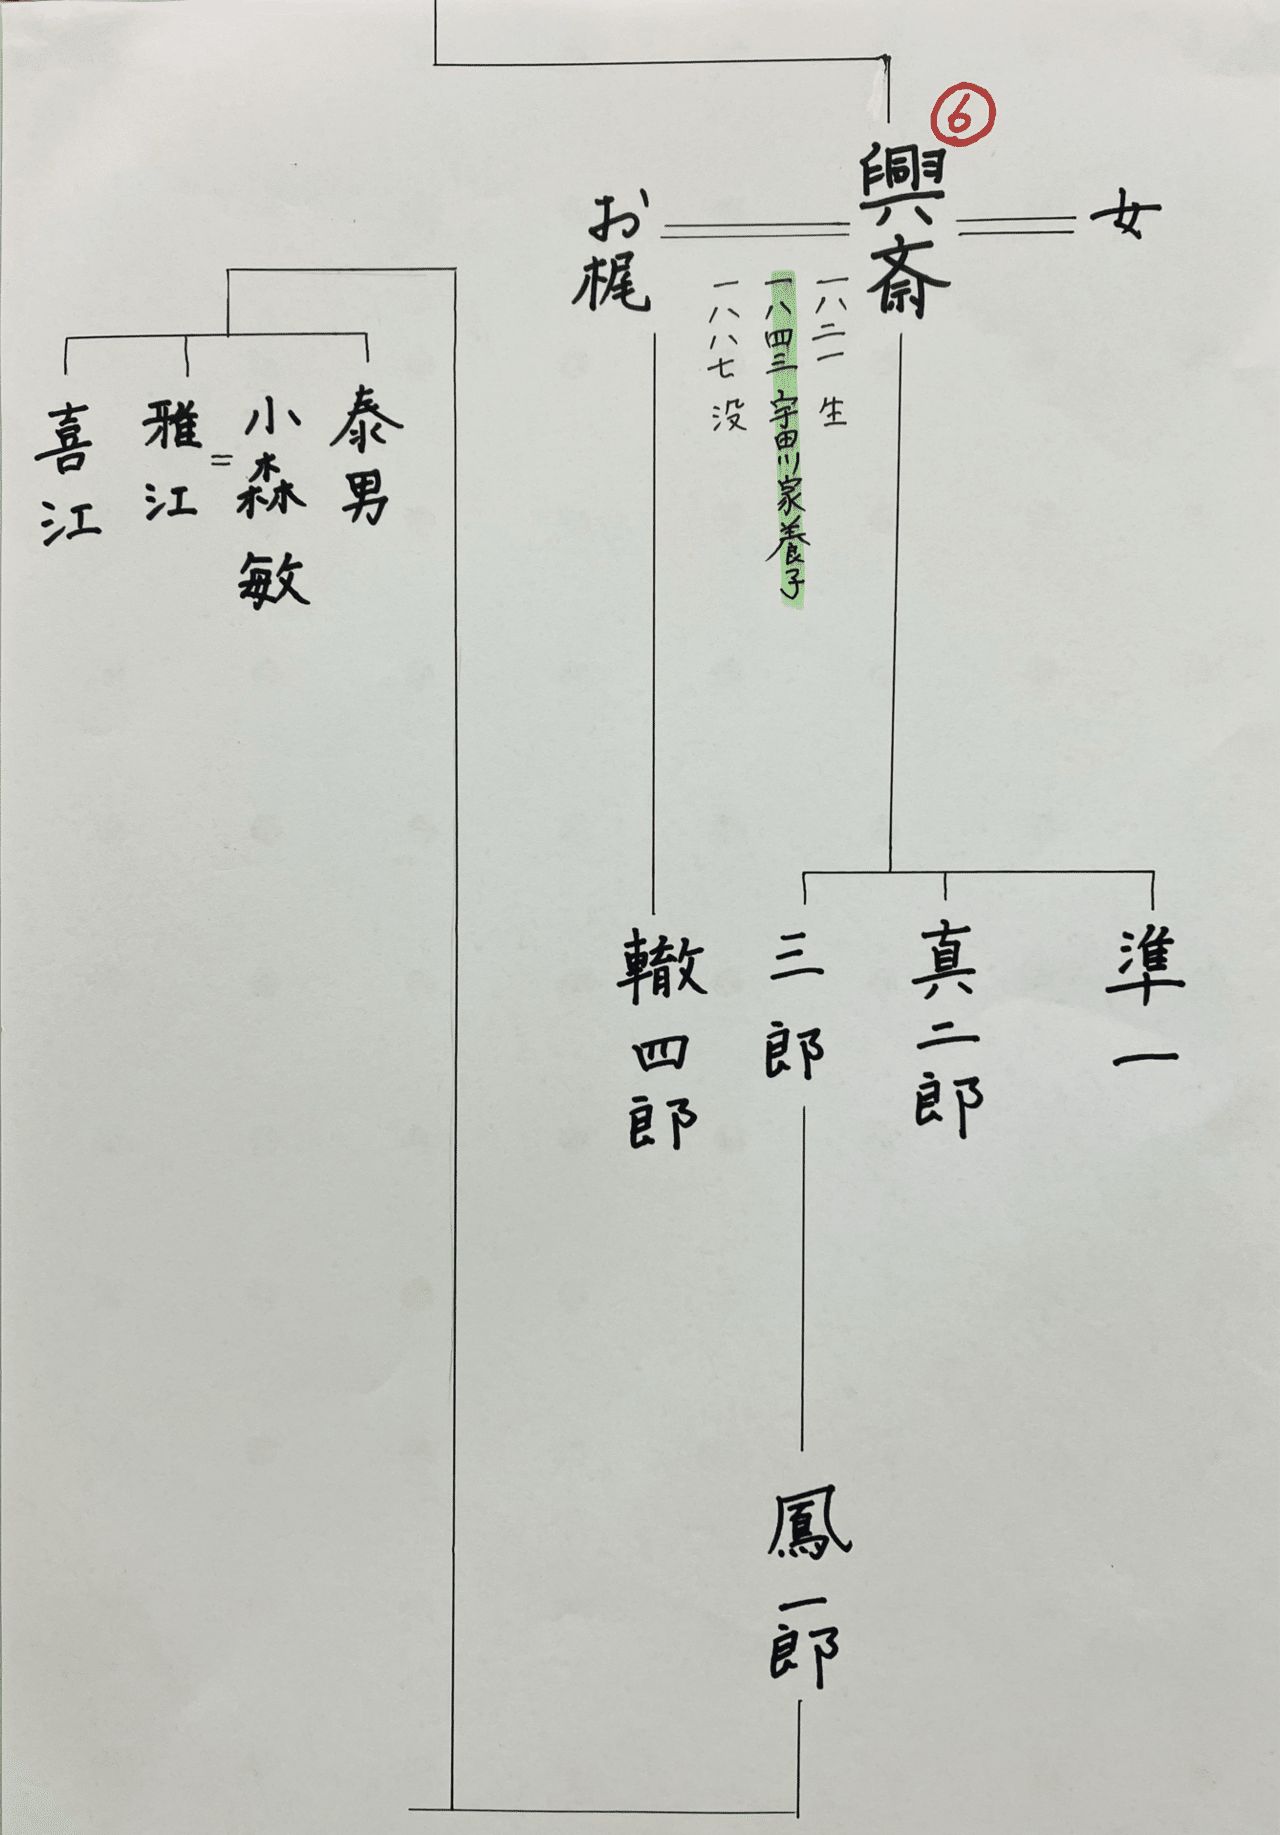 ⑥
女
興斎
一八二一 生
一八四三 宇田川家養子
一八八七 没
お梶
準一
真二郎
三郎
轍四郎
鳳一郎
泰男
小森敏
=
雅江
喜江